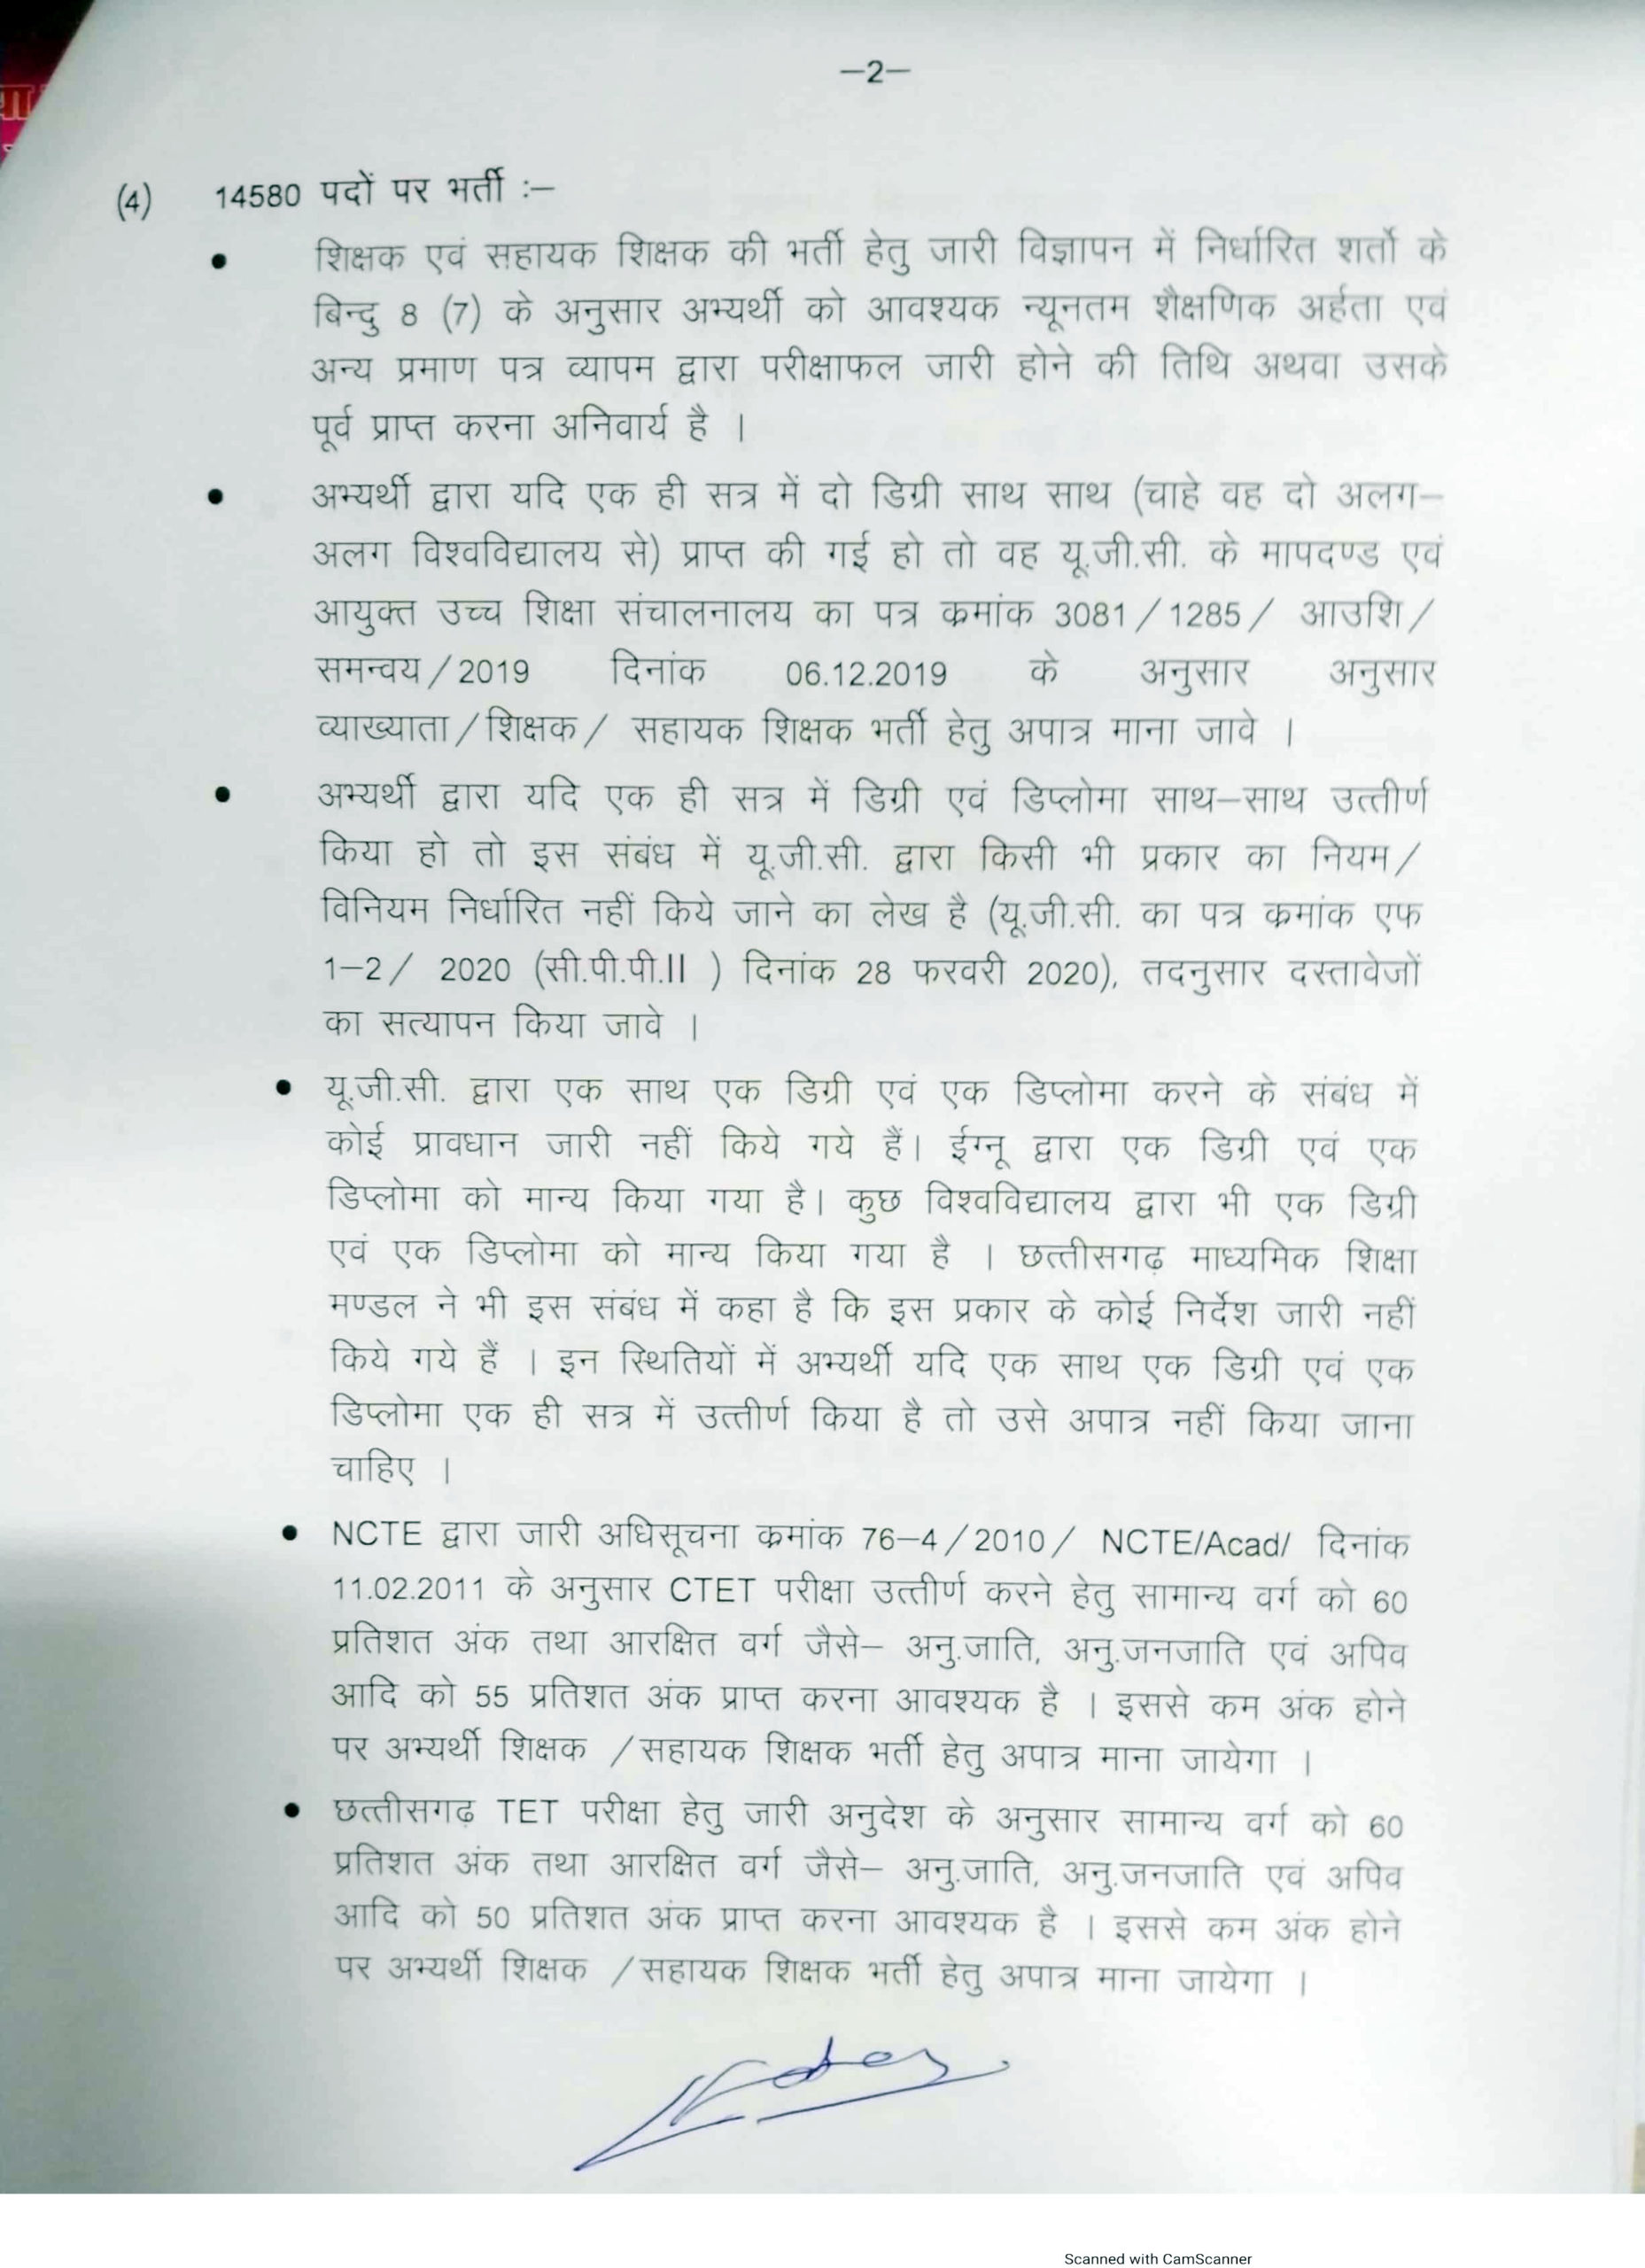 –2–
(4) 14580 पदों पर भर्ती :–
• शिक्षक एवं सहायक शिक्षक की भर्ती हेतु जारी विज्ञापन में निर्धारित शर्तो के
बिन्दु 8 (7) के अनुसार अभ्यर्थी को आवश्यक न्यूनतम शैक्षणिक अर्हता एवं
अन्य प्रमाण पत्र व्यापम द्वारा परीक्षाफल जारी होने की तिथि अथवा उसके
पूर्व प्राप्त करना अनिवार्य है ।
• अभ्यर्थी द्वारा यदि एक ही सत्र में दो डिग्री साथ साथ (चाहे वह दो अलग–
अलग विश्वविद्यालय से) प्राप्त की गई हो तो वह यू.जी.सी. के मापदण्ड एवं
आयुक्त उच्च शिक्षा संचालनालय का पत्र क्रमांक 3081/1285/ आउशि/
समन्वय/2019 दिनांक 06.12.2019 के अनुसार अनुसार
व्याख्याता/शिक्षक/ सहायक शिक्षक भर्ती हेतु अपात्र माना जावे ।
• अभ्यर्थी द्वारा यदि एक ही सत्र में डिग्री एवं डिप्लोमा साथ–साथ उत्तीर्ण
किया हो तो इस संबंध में यू.जी.सी. द्वारा किसी भी प्रकार का नियम/
विनियम निर्धारित नहीं किये जाने का लेख है (यू.जी.सी. का पत्र क्रमांक एफ
1–2/ 2020 (सी.पी.पी.II ) दिनांक 28 फरवरी 2020), तदनुसार दस्तावेजों
का सत्यापन किया जावे ।
• यू.जी.सी. द्वारा एक साथ एक डिग्री एवं एक डिप्लोमा करने के संबंध में
कोई प्रावधान जारी नहीं किये गये हैं। ईग्नू द्वारा एक डिग्री एवं एक
डिप्लोमा को मान्य किया गया है। कुछ विश्वविद्यालय द्वारा भी एक डिग्री
एवं एक डिप्लोमा को मान्य किया गया है । छत्तीसगढ़ माध्यमिक शिक्षा
मण्डल ने भी इस संबंध में कहा है कि इस प्रकार के कोई निर्देश जारी नहीं
किये गये हैं । इन स्थितियों में अभ्यर्थी यदि एक साथ एक डिग्री एवं एक
डिप्लोमा एक ही सत्र में उत्तीर्ण किया है तो उसे अपात्र नहीं किया जाना
चाहिए ।
• NCTE द्वारा जारी अधिसूचना क्रमांक 76–4/2010/ NCTE/Acad/ दिनांक
11.02.2011 के अनुसार CTET परीक्षा उत्तीर्ण करने हेतु सामान्य वर्ग को 60
प्रतिशत अंक तथा आरक्षित वर्ग जैसे– अनु.जाति, अनु.जनजाति एवं अपिव
आदि को 55 प्रतिशत अंक प्राप्त करना आवश्यक है । इससे कम अंक होने
पर अभ्यर्थी शिक्षक /सहायक शिक्षक भर्ती हेतु अपात्र माना जायेगा ।
• छत्तीसगढ़ TET परीक्षा हेतु जारी अनुदेश के अनुसार सामान्य वर्ग को 60
प्रतिशत अंक तथा आरक्षित वर्ग जैसे– अनु.जाति, अनु.जनजाति एवं अपिव
आदि को 50 प्रतिशत अंक प्राप्त करना आवश्यक है । इससे कम अंक होने
पर अभ्यर्थी शिक्षक /सहायक शिक्षक भर्ती हेतु अपात्र माना जायेगा ।
Scanned with CamScanner